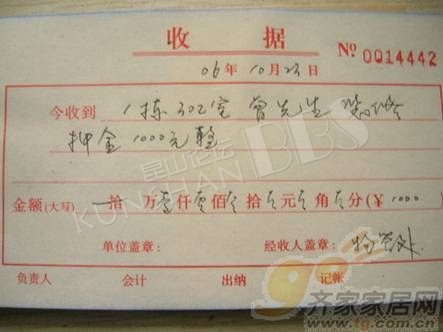 收据
No 0014442
06年10月23日
今收到 1栋302室 曾先生 装修
押金1000元整
金额(大写) 拾 万壹仟零佰零拾零元零角零分(¥ 1000 )
单位盖章: 经收人盖章: 物管处
负责人 会计 出纳 记账
昆山论坛
KUNSHAN BBS
齐家家居网
www.tg.com.cn